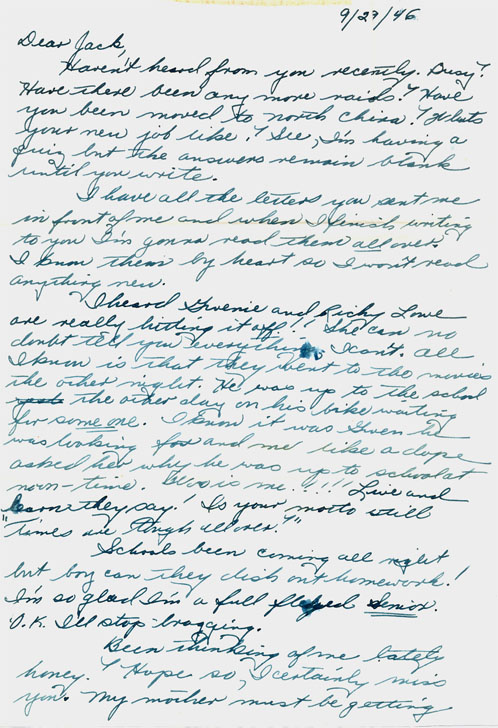 9/27/46
Dear Jack,
Haven't heard from you recently. Busy?
Have there been any more raids? Have
you been moved to north china? Whats
your new job like? See, I'm having a
quiz but the answers remain blank
until you write.
I have all the letters you sent me
in front of me and when I finish writing
to you I'm gonna read them all over.
I know them by heart so I won't read
anything new.
I heard Gwenie and Richy Lowe
are really hitting it off!!! She can no
doubt tell you everything, I can't. All
I know is that they went to the movies
the other night. He was up to the school
the other day on his bike waiting
for some one. I know it was Gwen he
was looking for and me like a dope
asked her why he was up to school at
noon-time. Woe is me!!!!! Live and
learn they say! Is your motto still
"Times are tough all over?"
Schools been coming all right
but boy can they dish out homework!
I'm so glad I'm a full fledged Senior.
O.K. I'll stop bragging.
Been thinking of me lately
honey? Hope so, I certainly miss
you. My mother must be getting